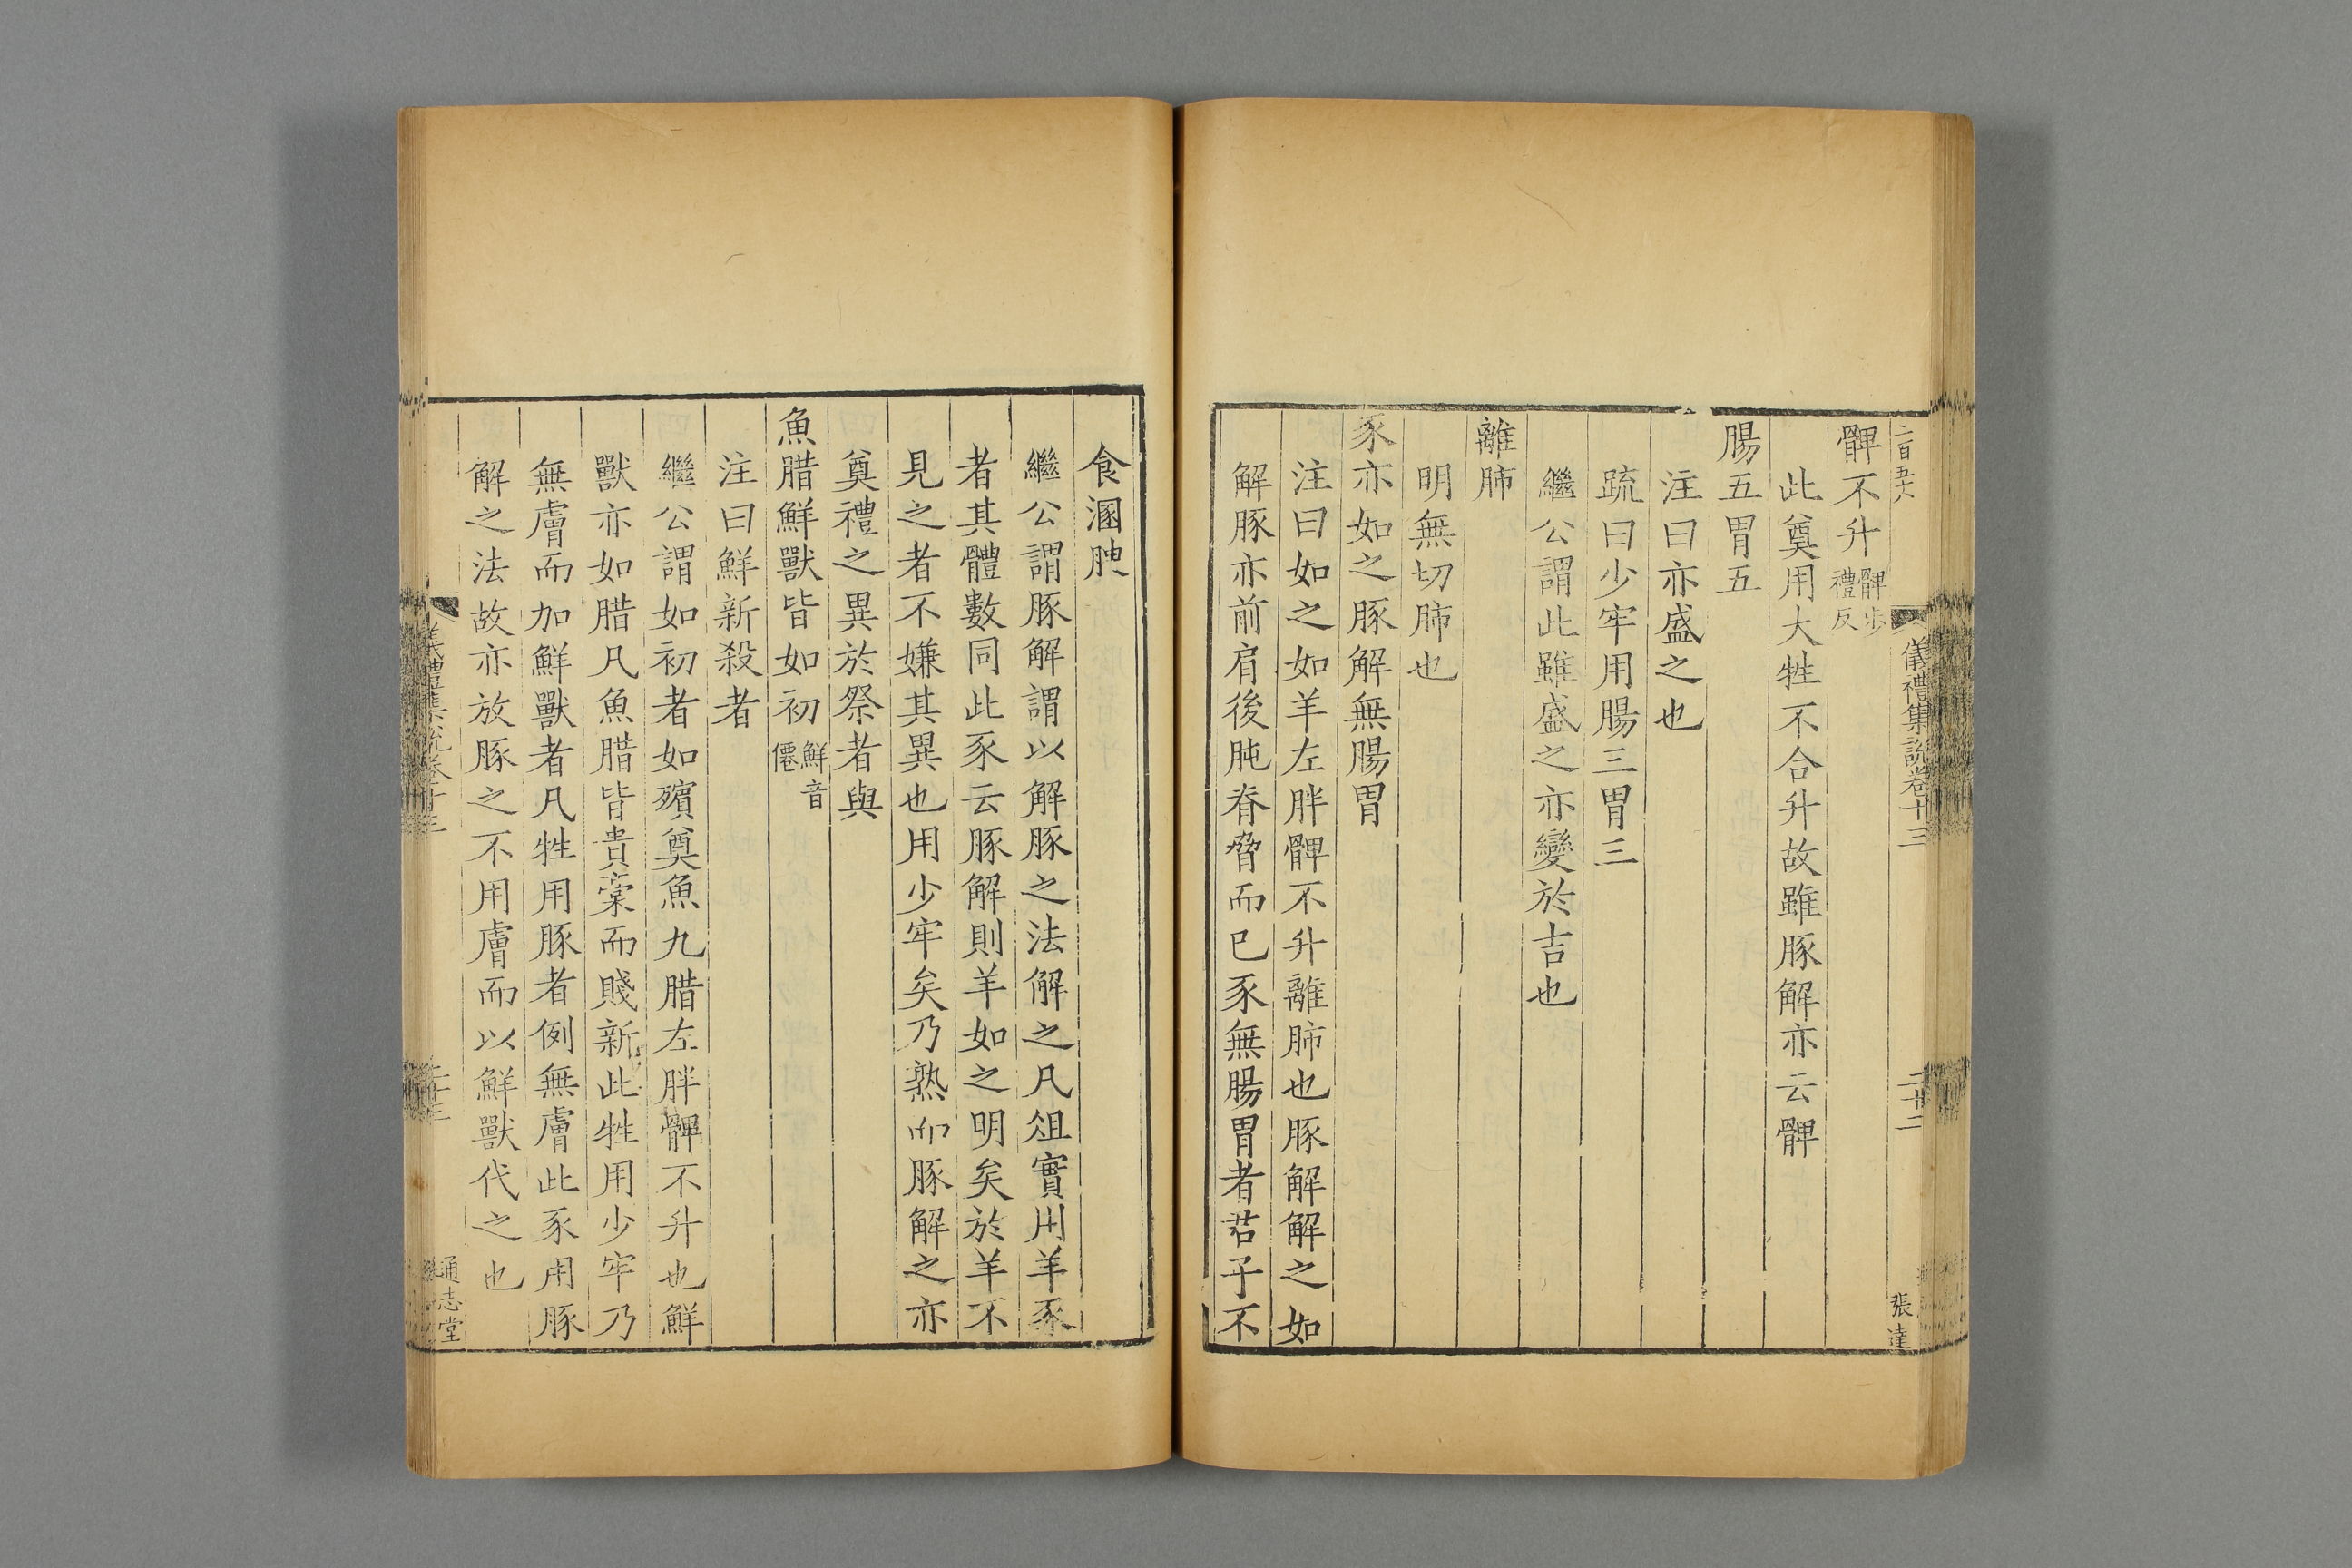 二百五六
儀禮集說卷十三
二十二
張達
髀不升髀步禮反
此奠用大牲不合升故雖豚解亦云髀
腸五胃五
注曰亦盛之也
疏曰少牢用腸三胃三
繼公謂此雖盛之亦變於吉也
離肺
明無切肺也
豕亦如之豚解無腸胃
注曰如之如羊左胖髀不升離肺也豚解解之如
解豚亦前肩後肫脊脅而已豕無腸胃者君子不
食溷腴
繼公謂豚解謂以解豚之法解之凡俎實用羊豕
者其體數同此豕云豚解則羊如之明矣於羊不
見之者不嫌其異也用少牢矣乃熟而豚解之亦
奠禮之異於祭者與
魚腊鮮獸皆如初鮮音僊
注曰鮮新殺者
繼公謂如初者如殯奠魚九腊左胖髀不升也鮮
獸亦如腊凡魚腊皆貴槀而賤新此牲用少牢乃
無膚而加鮮獸者凡牲用豚者例無膚此豕用豚
解之法故亦放豚之不用膚而以鮮獸代之也
儀禮集說卷十三
二十三
通志堂